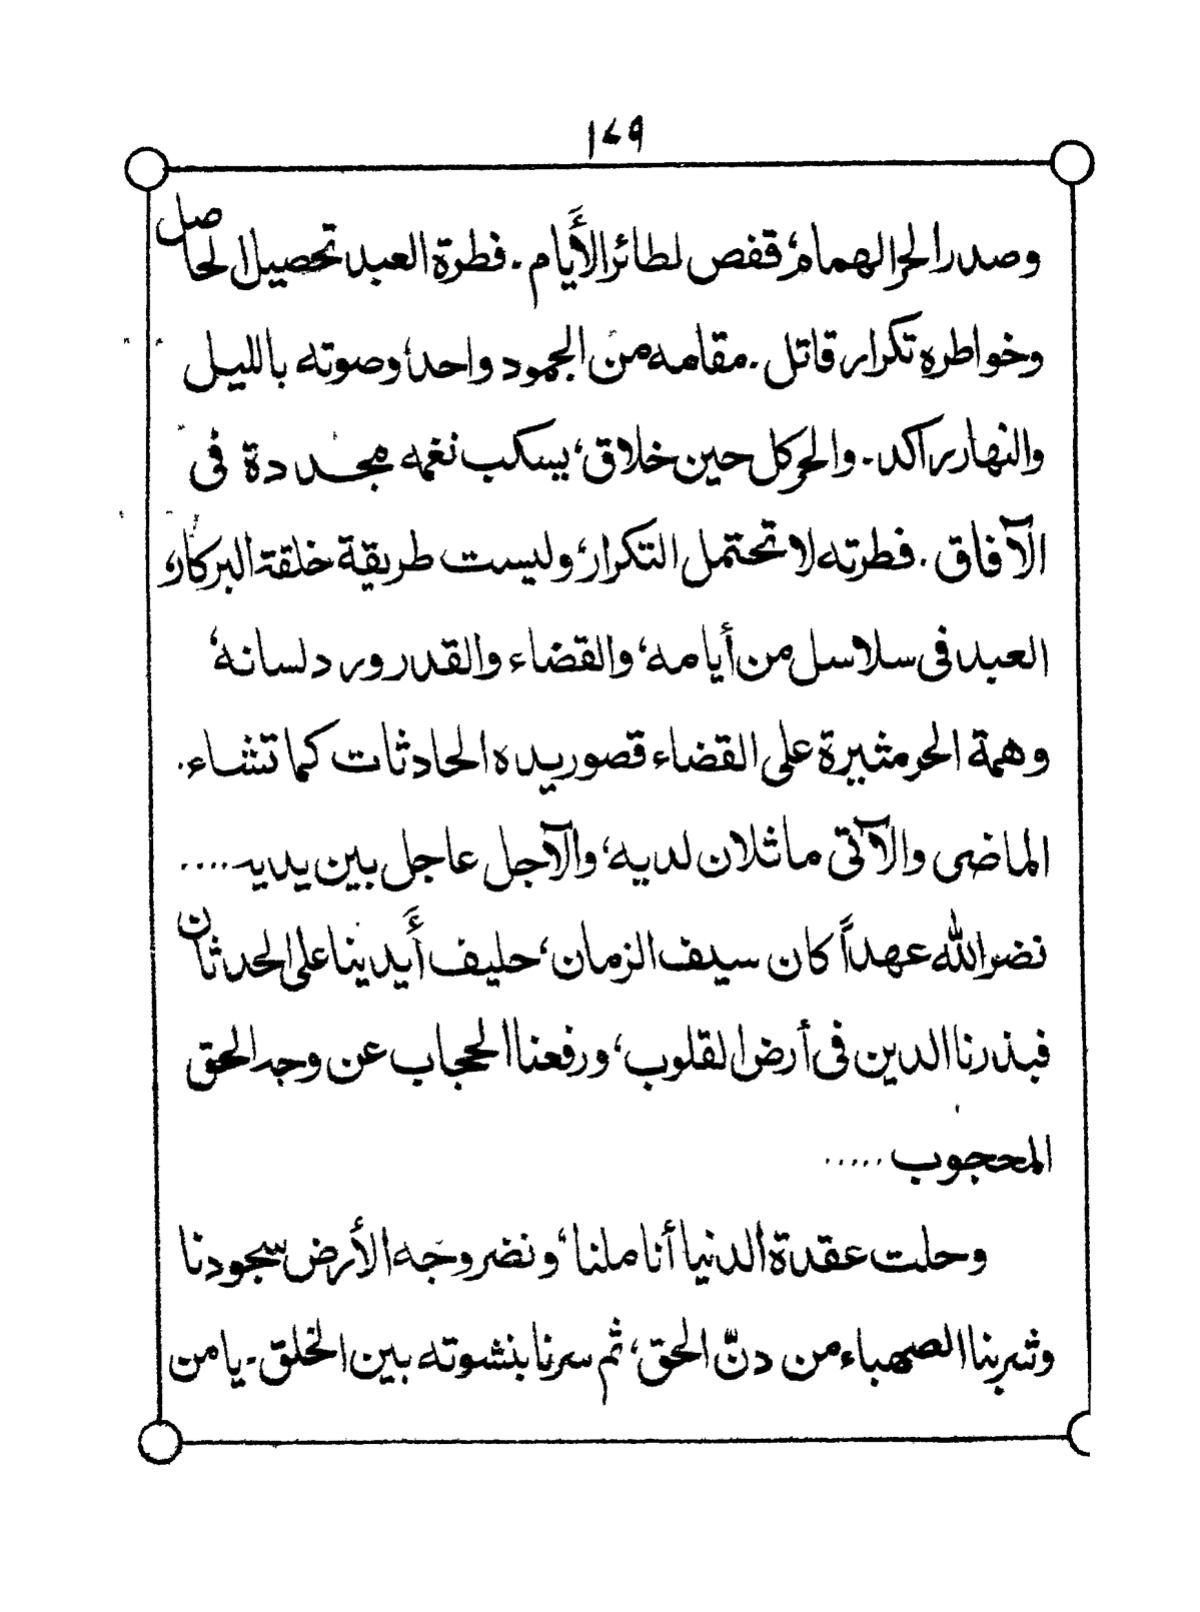 ١٤٩
وصدر الحر الهمام، قفص لطائر الأَيام. فطرة العبد تحصيل الحاصل
وخواطره تكرار قاتل. مقامه من الجمود واحد، وصوته بالليل
والنهار راكد. والحر كل حين خلاق، يسكب نغمه مجددة فى
الآفاق. فطرته لا تحتمل التكرار، وليست طريقة خلقة البركار،
العبد فى سلاسل من أيامه، والقضاء والقدر ورد لسانه،
وهمة الحر مثيرة على القضاء قصور يده الحادثات كما تشاء.
الماضى والآتى ماثلان لديه، والآجل عاجل بين يديه....
نضر الله عهداً كان سيف الزمان، حليف أَيدينا على الحدثان
فبذرنا الدين فى أرض القلوب، ورفعنا الحجاب عن وجه الحق
المحجوب .....
وحلت عقدة الدنيا أناملنا، ونضر وجه الأرض سجودنا
وشربنا الصهباء من دنّ الحق، ثم سرنا بنشوته بين الخلق. يا من